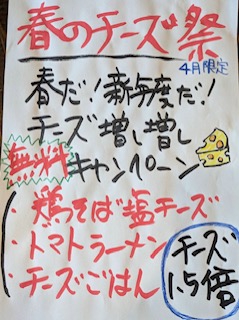 春のチーズ祭
4月限定
春だ！新年度だ！
チーズ増し増し
無料キャンペーン
・鶏そば塩チーズ
・トマトラーメン
・チーズごはん
チーズ
1.5倍